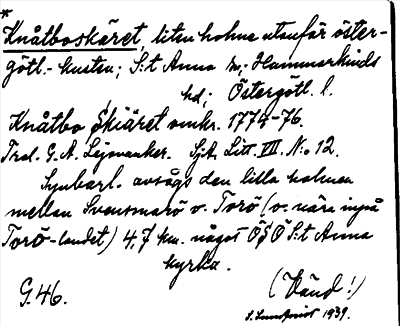 *
Knåtboskäret, liten holme utanför öster-
götl.-kusten; S:t Anna sn; Hammarkinds
hd; Östergötl. l.
Knåtbo Skiäret omkr. 1774-76.
Trol. G. A. Lejonanker. Sjk. Litt. VII. N:o 12.
Synbarl. avsågs den lilla holmen
mellan Svensmarö o. Torö (o. nära inpå
Torö-landet) 4,7 km. något OSO S:t Anna
kyrka.
G. 46.
(Vänd!)
S. Lundqvist 1939.